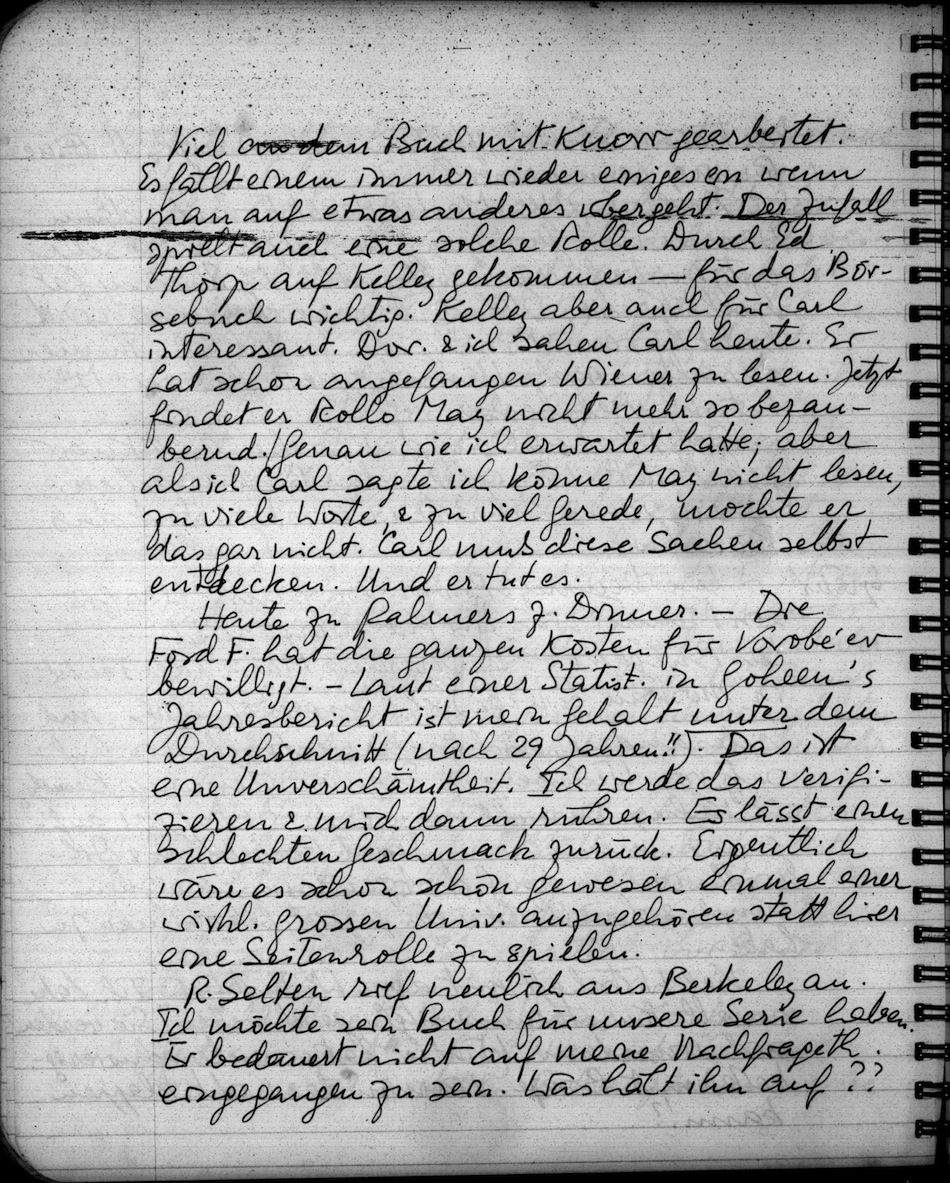 Viel an dem Buch mit Knorr gearbeitet.
Es fällt einem immer wieder einiges ein wenn
man auf etwas anderes übergeht. Der Zufall
spielt auch eine solche Rolle. Durch Ed
Thorp auf Kelley gekommen — für das Bör-
sebuch wichtig. Kelley aber auch für Carl
interessant. Dor. & ich sahen Carl heute. Er
hat schon angefangen Wiener zu lesen. Jetzt
findet er Rollo May nicht mehr so bezau-
bernd! Genau wie ich erwartet hatte; aber
als ich Carl sagte ich könne May nicht lesen,
zu viele Worte, & zu viel Gerede, mochte er
das gar nicht. Carl muß diese Sachen selbst
entdecken. Und er tut es.
Heute zu Palmers z. Dinner. — Die
Ford F. hat die ganzen Kosten für Vorobév
bewilligt. – Laut einer Statist. in Goheen's
Jahresbericht ist mein Gehalt unter dem
Durchschnitt (nach 29 Jahren!!). Das ist
eine Unverschämtheit. Ich werde das verifi-
zieren & mich dann rühren. Es lässt einen
schlechten Geschmack zurück. Eigentlich
wäre es schon schön gewesen einmal einer
wirkl. grossen Univ. anzugehören statt hier
eine Seitenrolle zu spielen.
R. Selten rief neulich aus Berkeley an.
Ich möchte sein Buch für unsere Serie haben.
Er bedauert nicht auf meine Nachfrage
eingegangen zu sein. Was hält ihn auf ??